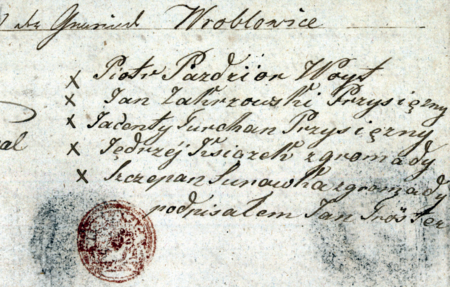 Gminie Wroblowice
x Piotr Pazdzior Woyt
x Jan Zakrzowski Przysięzny
x Jacenty Turchan Przysięzny
x Jędrzéj Ksiązek z gromady
x Szczepan Surowka z gromady
podpisałem Jan Tröster